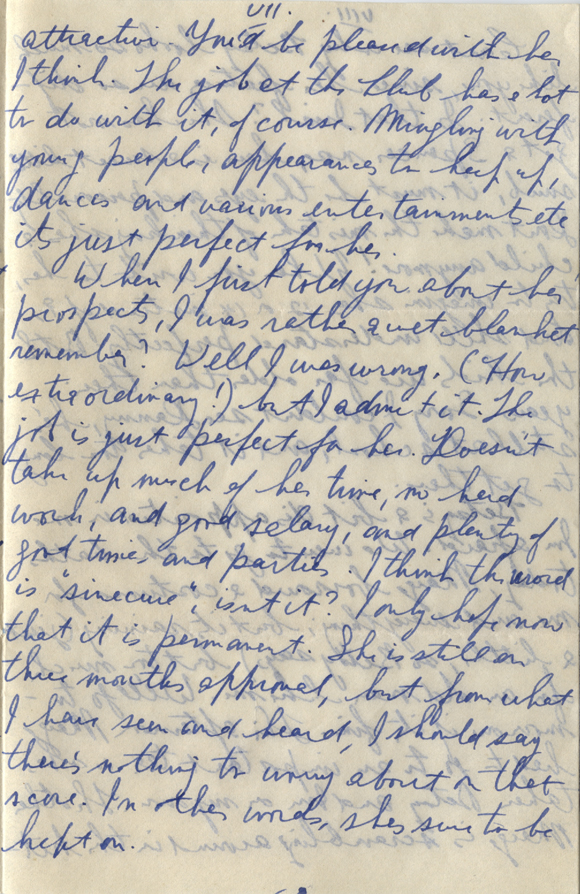 VII.
attractive. You'd be pleased with her
I think. The job at the Club has a lot
to do with it, of course. Mingling with
young people, appearances to keep up,
dances and various entertainments etc
it's just perfect for her.
When I first told you about her
prospects, I was rather a wet blanket
remember? Well I was wrong. (How
extraordinary!) but I admit it. The
job is just perfect for her. Doesn't
take up much of her time, no hard
work, and good salary, and plenty of
good times and parties. I think the word
is "sinecure", isn't it? I only hope now
that it is permanent. She is still on
three months approval, but from what
I have seen and heard, I should say
there's nothing to worry about on that
score. In other words, she's sure to be
kept on.